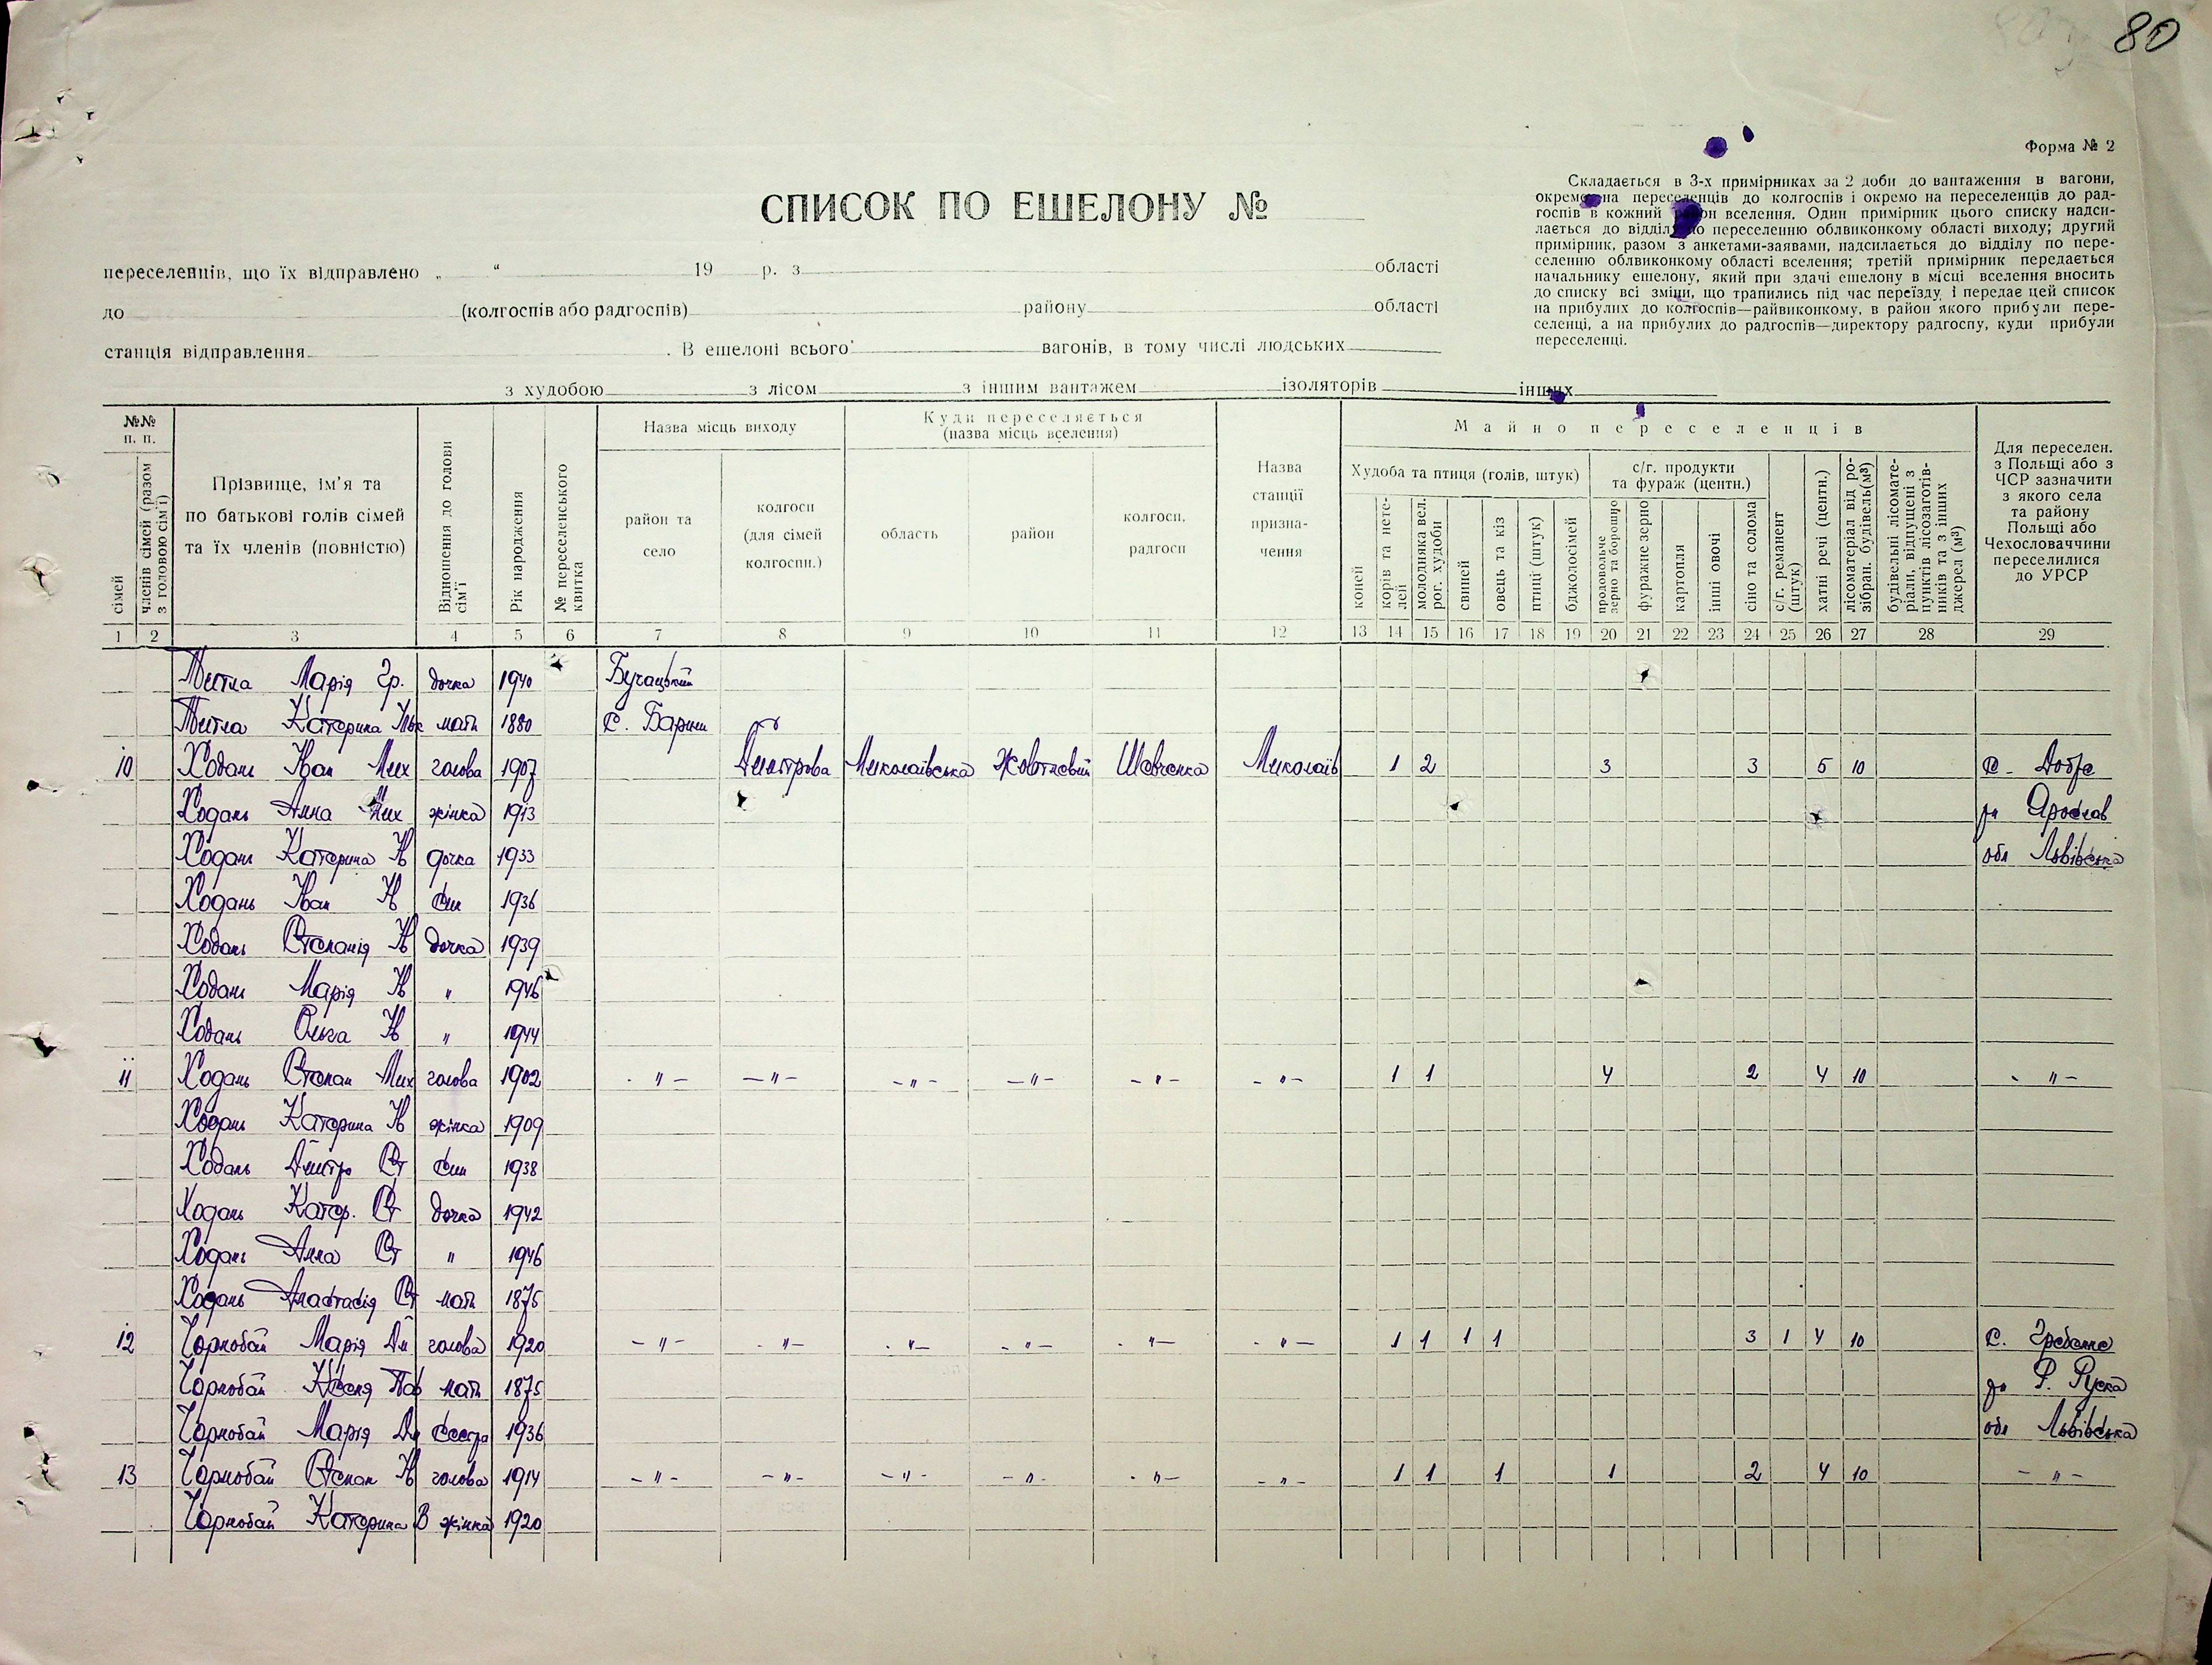 80
Форма № 2
СПИСОК ПО ЕШЕЛОНУ №
Складається в 3-х примірниках за 2 доби до вантаження в вагони,
окремо на переселенців до колгоспів і окремо на переселенців до рад-
госпів в кожний район вселення. Один примірник цього списку надси-
лається до відділу по переселенню облвиконкому області виходу; другий
примірник, разом з анкетами-заявами, надсилається до відділу по пере-
селенню облвиконкому області вселення; третій примірник передається
начальнику ешелону, який при здачі ешелону в місці вселення вносить
до списку всі зміни, що трапились під час переїзду, і передає цей список
на прибулих до колгоспів—райвиконкому, в район якого прибули пере-
селенці, а на прибулих до радгоспів—директору радгоспу, куди прибули
переселенці.
переселенців, що їх відправлено „ “ 19 р. з області
до (колгоспів або радгоспів) району області
станція відправлення . В ешелоні всього вагонів, в тому числі людських
з худобою з лісом з іншим вантажем ізоляторів інших
№№ п. п.
сімей
членів сімей (разом з головою сім'ї)
Прізвище, ім'я та
по батькові голів сімей
та їх членів (повністю)
Відношення до голови сім'ї
Рік народження
№ переселенського квитка
Назва місць виходу
район та
село
колгосп
(для сімей
колгоспн.)
Куди переселяється
(назва місць вселення)
область
район
колгосп,
радгосп
Назва
станції
призна-
чення
Майно переселенців
Худоба та птиця (голів, штук)
коней
корів та нете-
лей
молодняка вел.
рог. худоби
свиней
овець та кіз
птиці (штук)
бджолосімей
с/г. продукти
та фураж (центн.)
продовольче
зерно та борошно
фуражне зерно
картопля
інші овочі
сіно та солома
с/г. реманент
(штук)
хатні речі (центн.)
лісоматеріал від ро-
зібран. будівель (м³)
будівельні лісомате-
ріали, відпущені з
пунктів лісозаготів-
ників та з інших
джерел (м³)
Для переселен.
з Польщі або з
ЧСР зазначити
з якого села
та району
Польщі або
Чехословаччини
переселилися
до УРСР
1 2 3 4 5 6 7 8 9 10 11 12 13 14 15 16 17 18 19 20 21 22 23 24 25 26 27 28 29
Марія Гр. дочка 1940 Бучацький
Катерина мати 1880 с. Бариш
10 Ходань Іван Мих голова 1907 Димитрова Миколаївська Жовтневий Шевченка Миколаїв 1 2 3 3 5 10 с. Добре
Ходань Анна Мих жінка 1913 рн Ярослав
Ходань Катерина І дочка 1933 обл Львівська
Ходань Іван І син 1936
Ходань Степанія І дочка 1939
Ходань Марія І " 1946
Ходань Ольга І " 1944
11 Ходань Степан Мих голова 1902 -"- -"- -"- -"- -"- -"- 1 1 4 2 4 10 -"-
Ходань Катерина І жінка 1909
Ходань Дмитро Ст син 1938
Ходань Катер. Ст дочка 1942
Ходань Анна Ст " 1946
Ходань Анастасія Ст мати 1875
12 Чорнобай Марія Дм голова 1920 -"- -"- -"- -"- -"- -"- 1 1 1 1 3 1 4 10 с. Гребенне
Чорнобай Ксеня Пав мати 1875 рн Р. Руска
Чорнобай Марія Дм сестра 1936 обл Львівська
13 Чорнобай Степан І голова 1914 -"- -"- -"- -"- -"- -"- 1 1 1 1 2 4 10 -"-
Чорнобай Катерина В жінка 1920